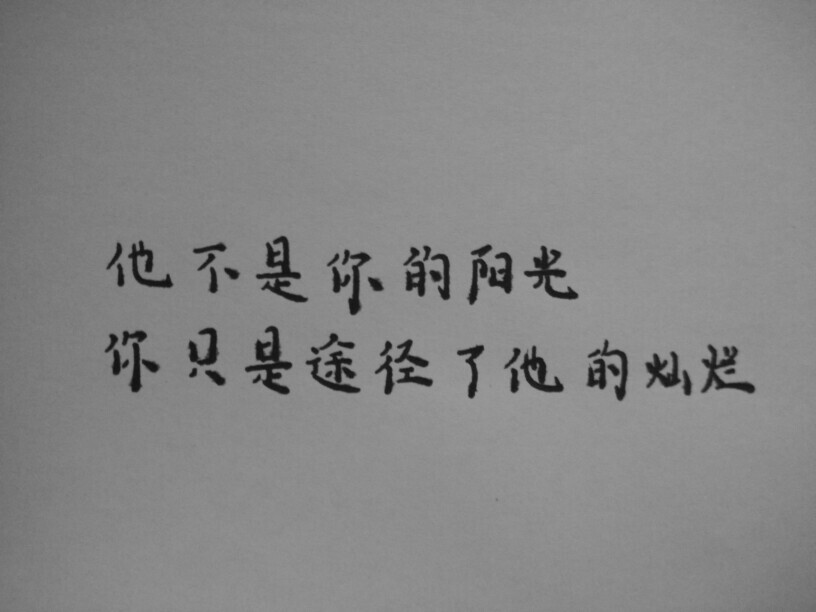 他不是你的阳光
你只是途径了他的灿烂